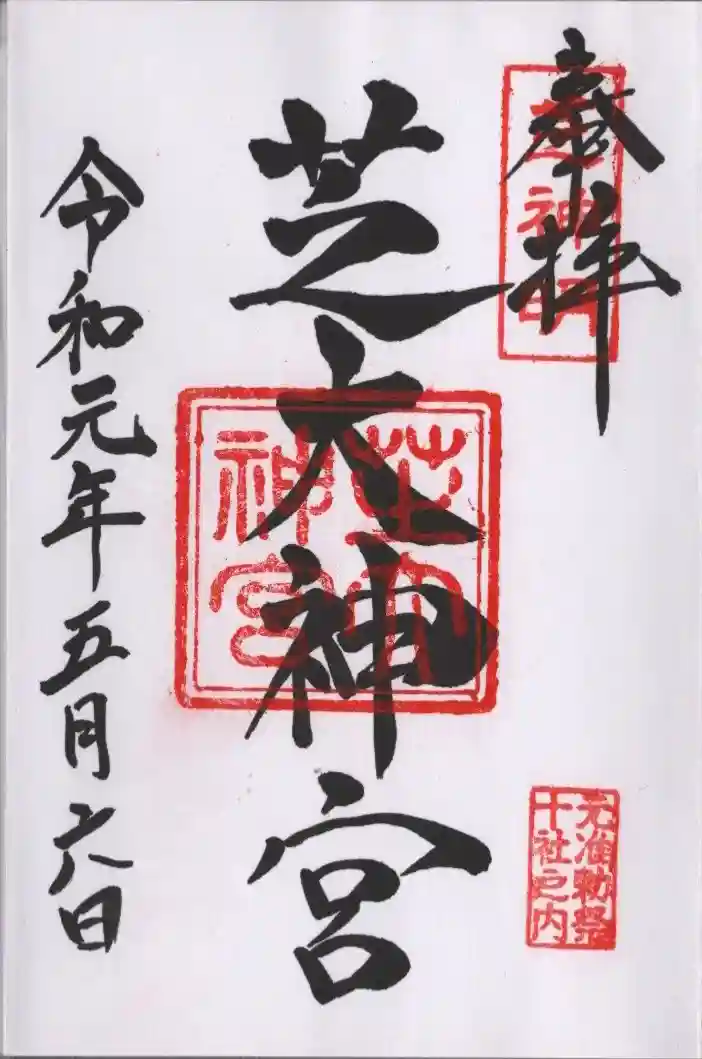 奉拝
芝神明
芝大神宮
芝大
神宮
元准勅祭
十社之内
令和元年五月六日